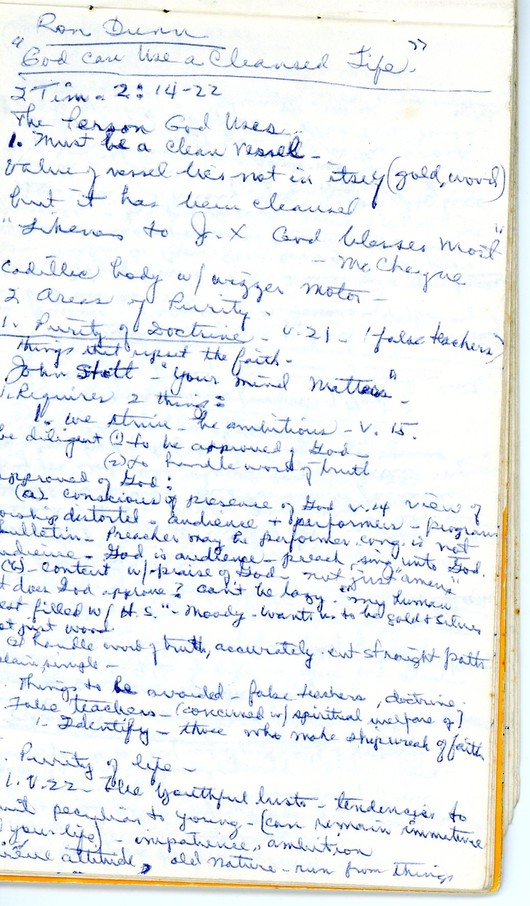 Ron Dunn
"God can Use a Cleansed Life."
2 Tim. 2:14-22
The Person God Uses.
1. Must be a clean vessel -
Value of vessel lies not in itself (gold, wood)
but it has been cleansed.
"Likeness to J.X God blesses most"
- McCheyne
Cadillac body w/ motor -
2 Areas of Purity.
1. Purity of Doctrine - v.21 - (false teachers)
things that upset the faith -
John Stott - "Your Mind Matters" -
1. Requires 2 things:
1. we strive - be ambitious - v. 15.
be diligent (1) to be approved of God -
(2) to handle word of truth
approved of God:
(a) conscious of presence of God v.14 view of
worship distorted - audience + performers - program
bulletin - Preacher may be performer, cong. is not
audience - God is audience - preach, sing unto God.
(b) - content w/ praise of God - not just "amens"
does God approve? can't be lazy - "my human
filled w/ H.S." - Moody - wants us to be gold & silver
not just wood
(2) handle word of truth, accurately - cut straight paths
plain, simple -
Things to be avoided - false teachers, doctrine.
False teachers - (concerned w/ spiritual welfare of]
1. Identify - those who make shipwreck of faith
Purity of life -
1. V. 22 - flee youthful lusts - tendencies to
peculiar to young - (can remain immature
your life) - impatience, ambition
attitude, old nature - run from things